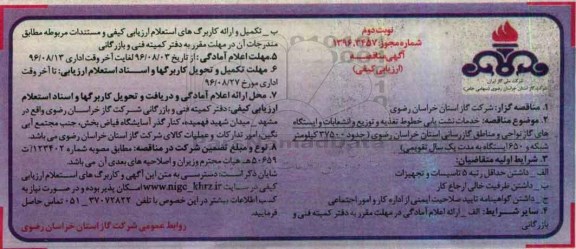 نوبت دوم
شماره مجوز: ۱۳۹۶.۳۲۵۷
آگهی مناقصه
(ارزیابی کیفی)
شرکت ملی گاز ایران
شرکت گاز استان خراسان رضوی (سهامی خاص)
۱. مناقصه گزار: شرکت گاز استان خراسان رضوی
۲. موضوع مناقصه: خدمات نشت یابی خطوط تغذیه و توزیع وانشعابات و ایستگاه
های گاز نواحی و مناطق گازرسانی استان خراسان رضوی (حدود ۲۷۵۰۰ کیلومتر
شبکه و ۱۶۵۰ ایستگاه به مدت یک سال تقویمی)
۳. شرایط اولیه متقاضیان:
الف_ داشتن حداقل رتبه ۵ تاسیسات و تجهیزات
ب_ داشتن ظرفیت خالی ارجاع کار
ج_ داشتن گواهینامه تایید صلاحیت ایمنی از اداره کار و امور اجتماعی
۴. سایر شرایط: الف_ ارائه اعلام آمادگی در مهلت مقرر به دفتر کمیته فنی و
بازرگانی
ب_ تکمیل و ارائه کاربرگ های استعلام ارزیابی کیفی و مستندات مربوطه مطابق
مندرجات آن در مهلت مقرر به دفتر کمیته فنی و بازرگانی
۵. مهلت اعلام آمادگی: از تاریخ ۹۶/۰۸/۰۳ لغایت آخر وقت اداری ۹۶/۰۸/۱۳
۶. مهلت تکمیل و تحویل کاربرگها و اسناد استعلام ارزیابی: تا آخر وقت
اداری مورخ ۹۶/۰۸/۲۷
۷. محل ارائه اعلام آمادگی و دریافت و تحویل کاربرگها و اسناد استعلام
ارزیابی کیفی: دفتر کمیته فنی و بازرگانی شرکت گاز خراسان رضوی واقع در
مشهد_ میدان شهید فهمیده، کنار گذر آسایشگاه فیاض بخش، جنب مجتمع آبی
نگین، امور تدارکات و عملیات کالای شرکت گاز استان خراسان رضوی می باشد.
۸. نوع و مبلغ تضمین شرکت در مناقصه: مطابق مصوبه شماره ۱۲۳۴۰۲/ت
۵۰۶۵۹هـ هیات محترم وزیران و اصلاحیه های بعدی آن می باشد.
شایان ذکر است: دسترسی به متن این آگهی و کاربرگ های استعلام ارزیابی
کیفی در سایت www.nigc_khrz.ir امکان پذیر بوده و در صورت نیاز به
کسب اطلاعات بیشتر در این خصوص با تلفن ۳۷۰۷۲۸۲۲_۰۵۱ تماس حاصل
فرمایید.
روابط عمومی شرکت گاز استان خراسان رضوی